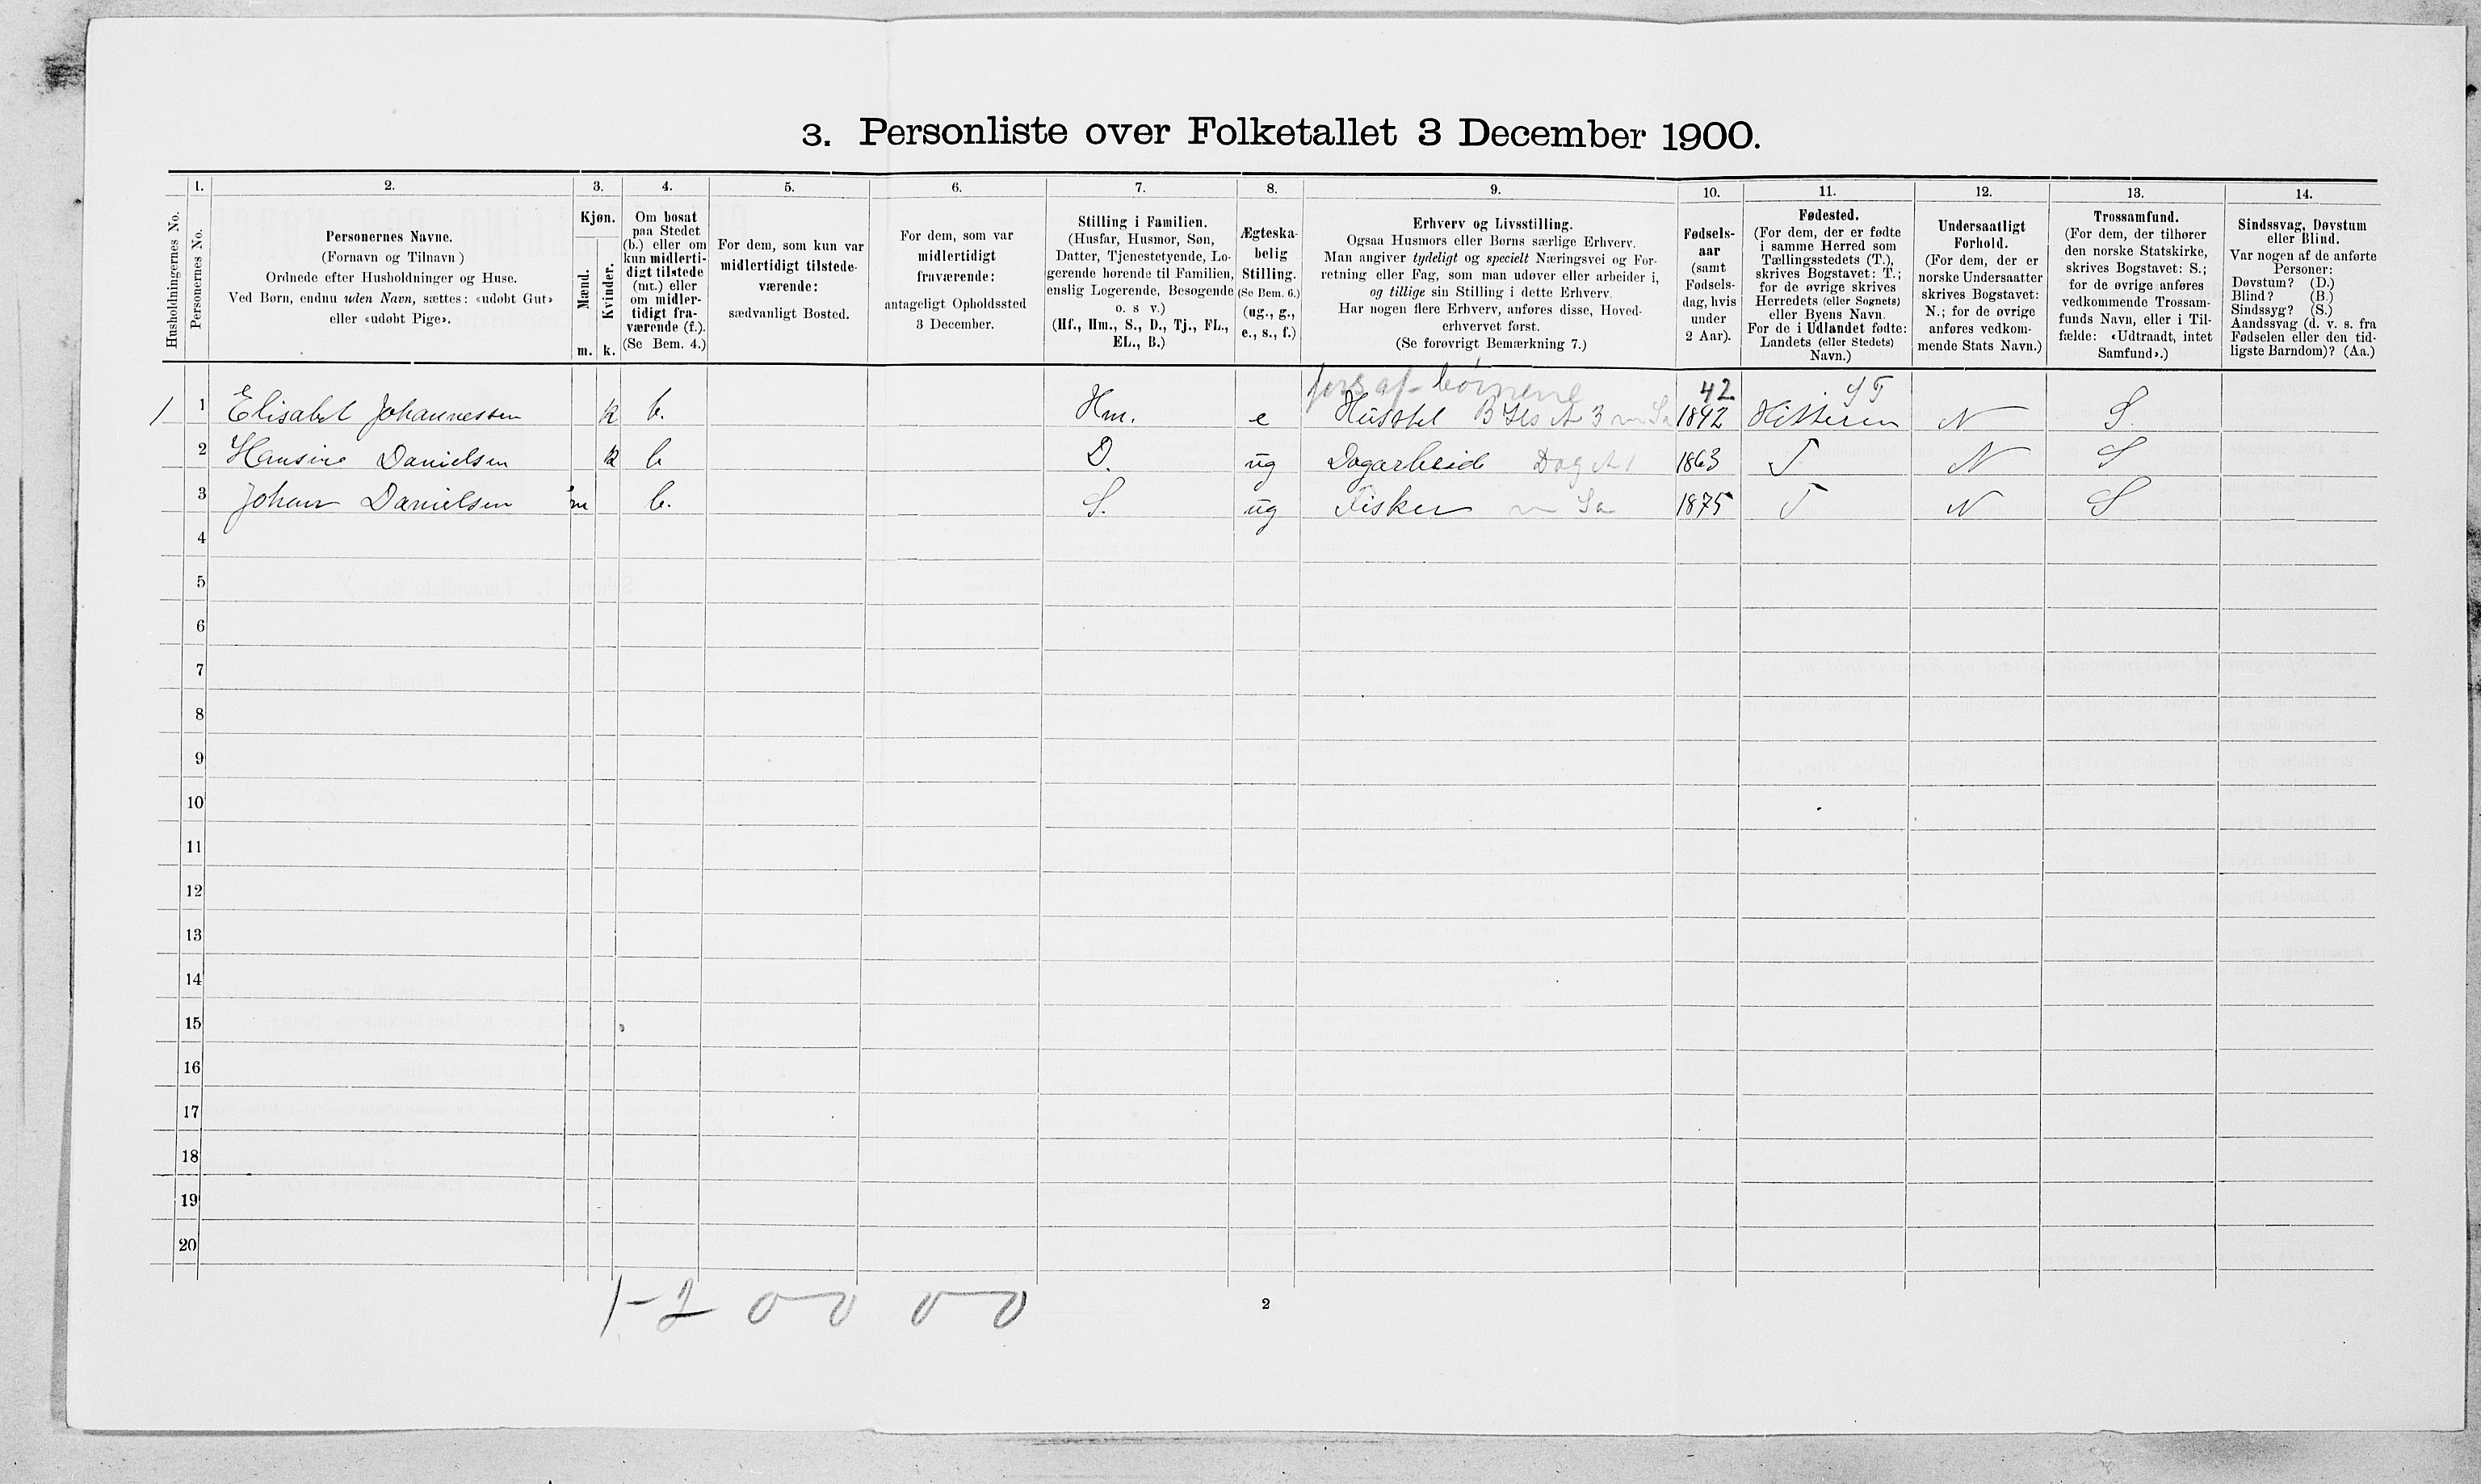 3. Personliste over Folketallet 3 December 1900.
1. 2. 3. 4. 5. 6. 7. 8. 9. 10. 11. 12. 13. 14.
Husholdningernes No.
Personernes No.
Personernes Navne.
(Fornavn og Tilnavn)
Ordnede efter Husholdninger og Huse.
Ved Børn, endnu uden Navn, sættes: «udøbt Gut»
eller «udøbt Pige».
Kjøn.
Mænd.
Kvinder.
m. k.
Om bosat
paa Stedet
(b.) eller om
kun midlerti-
digt tilstede
(mt.) eller
om midler-
tidigt fra-
værende (f.).
(Se Bem. 4.)
For dem, som kun var
midlertidigt tilstede-
værende:
sædvanligt Bosted.
For dem, som var
midlertidigt
fraværende:
antageligt Opholdssted
3 December.
Stilling i Familien.
(Husfar, Husmor, Søn,
Datter, Tjenestetyende, Lo-
gerende hørende til Familien,
enslig Logerende, Besøgende
o. s v.)
(Hf., Hm., S., D., Tj., FL.,
EL., B.)
Ægteska-
belig
Stilling.
(Se Bem. 6.)
(ug., g.,
e., s., f.)
Erhverv og Livsstilling.
Ogsaa Husmors eller Børns særlige Erhverv.
Man angiver tydeligt og specielt Næringsvei og For-
retning eller Fag, som man udøver eller arbeider i,
og tillige sin Stilling i dette Erhverv.
Har nogen flere Erhverv, anføres disse, Hoved-
erhvervet først.
(Se forøvrigt Bemærkning 7.)
Fødsels-
aar
(samt
Fødsels-
dag, hvis
under
2 Aar).
Fødested.
(For dem, der er fødte
i samme Herred som
Tællingsstedets (T.),
skrives Bogstavet: T.;
for de øvrige skrives
Herredets (eller Sognets)
eller Byens Navn.
For de i Udlandet fødte:
Landets (eller Stedets)
Navn.)
Undersaatligt
Forhold.
(For dem, der er
norske Undersaatter
skrives Bogstavet:
N.; for de øvrige
anføres vedkom-
mende Stats Navn.)
Trossamfund.
(For dem, der tilhører
den norske Statskirke,
skrives Bogstavet: S.;
for de øvrige anføres
vedkommende Trossam-
funds Navn, eller i Til-
fælde: «Udtraadt, intet
Samfund».)
Sindssvag, Døvstum
eller Blind.
Var nogen af de anførte
Personer:
Døvstum? (D.)
Blind? (B.)
Sindssyg? (S.)
Aandssvag (d. v. s. fra
Fødselen eller den tid-
ligste Barndom)? (Aa.)
fors af børnene 42
1 1 Elisabet Johannessen k b. Hm. e Husstel 1842 Hitteren N S.
2 Hansine Danielsen k b D. ug Dagarbeid Dag 1863 T N S
3 Johan Danielsen m b. S. ug Fisker Sa 1875 T N S
4
5
6
7
8
9
10
11
12
13
14
15
16
17
18
19
20
1-2 0 0 0 0
2